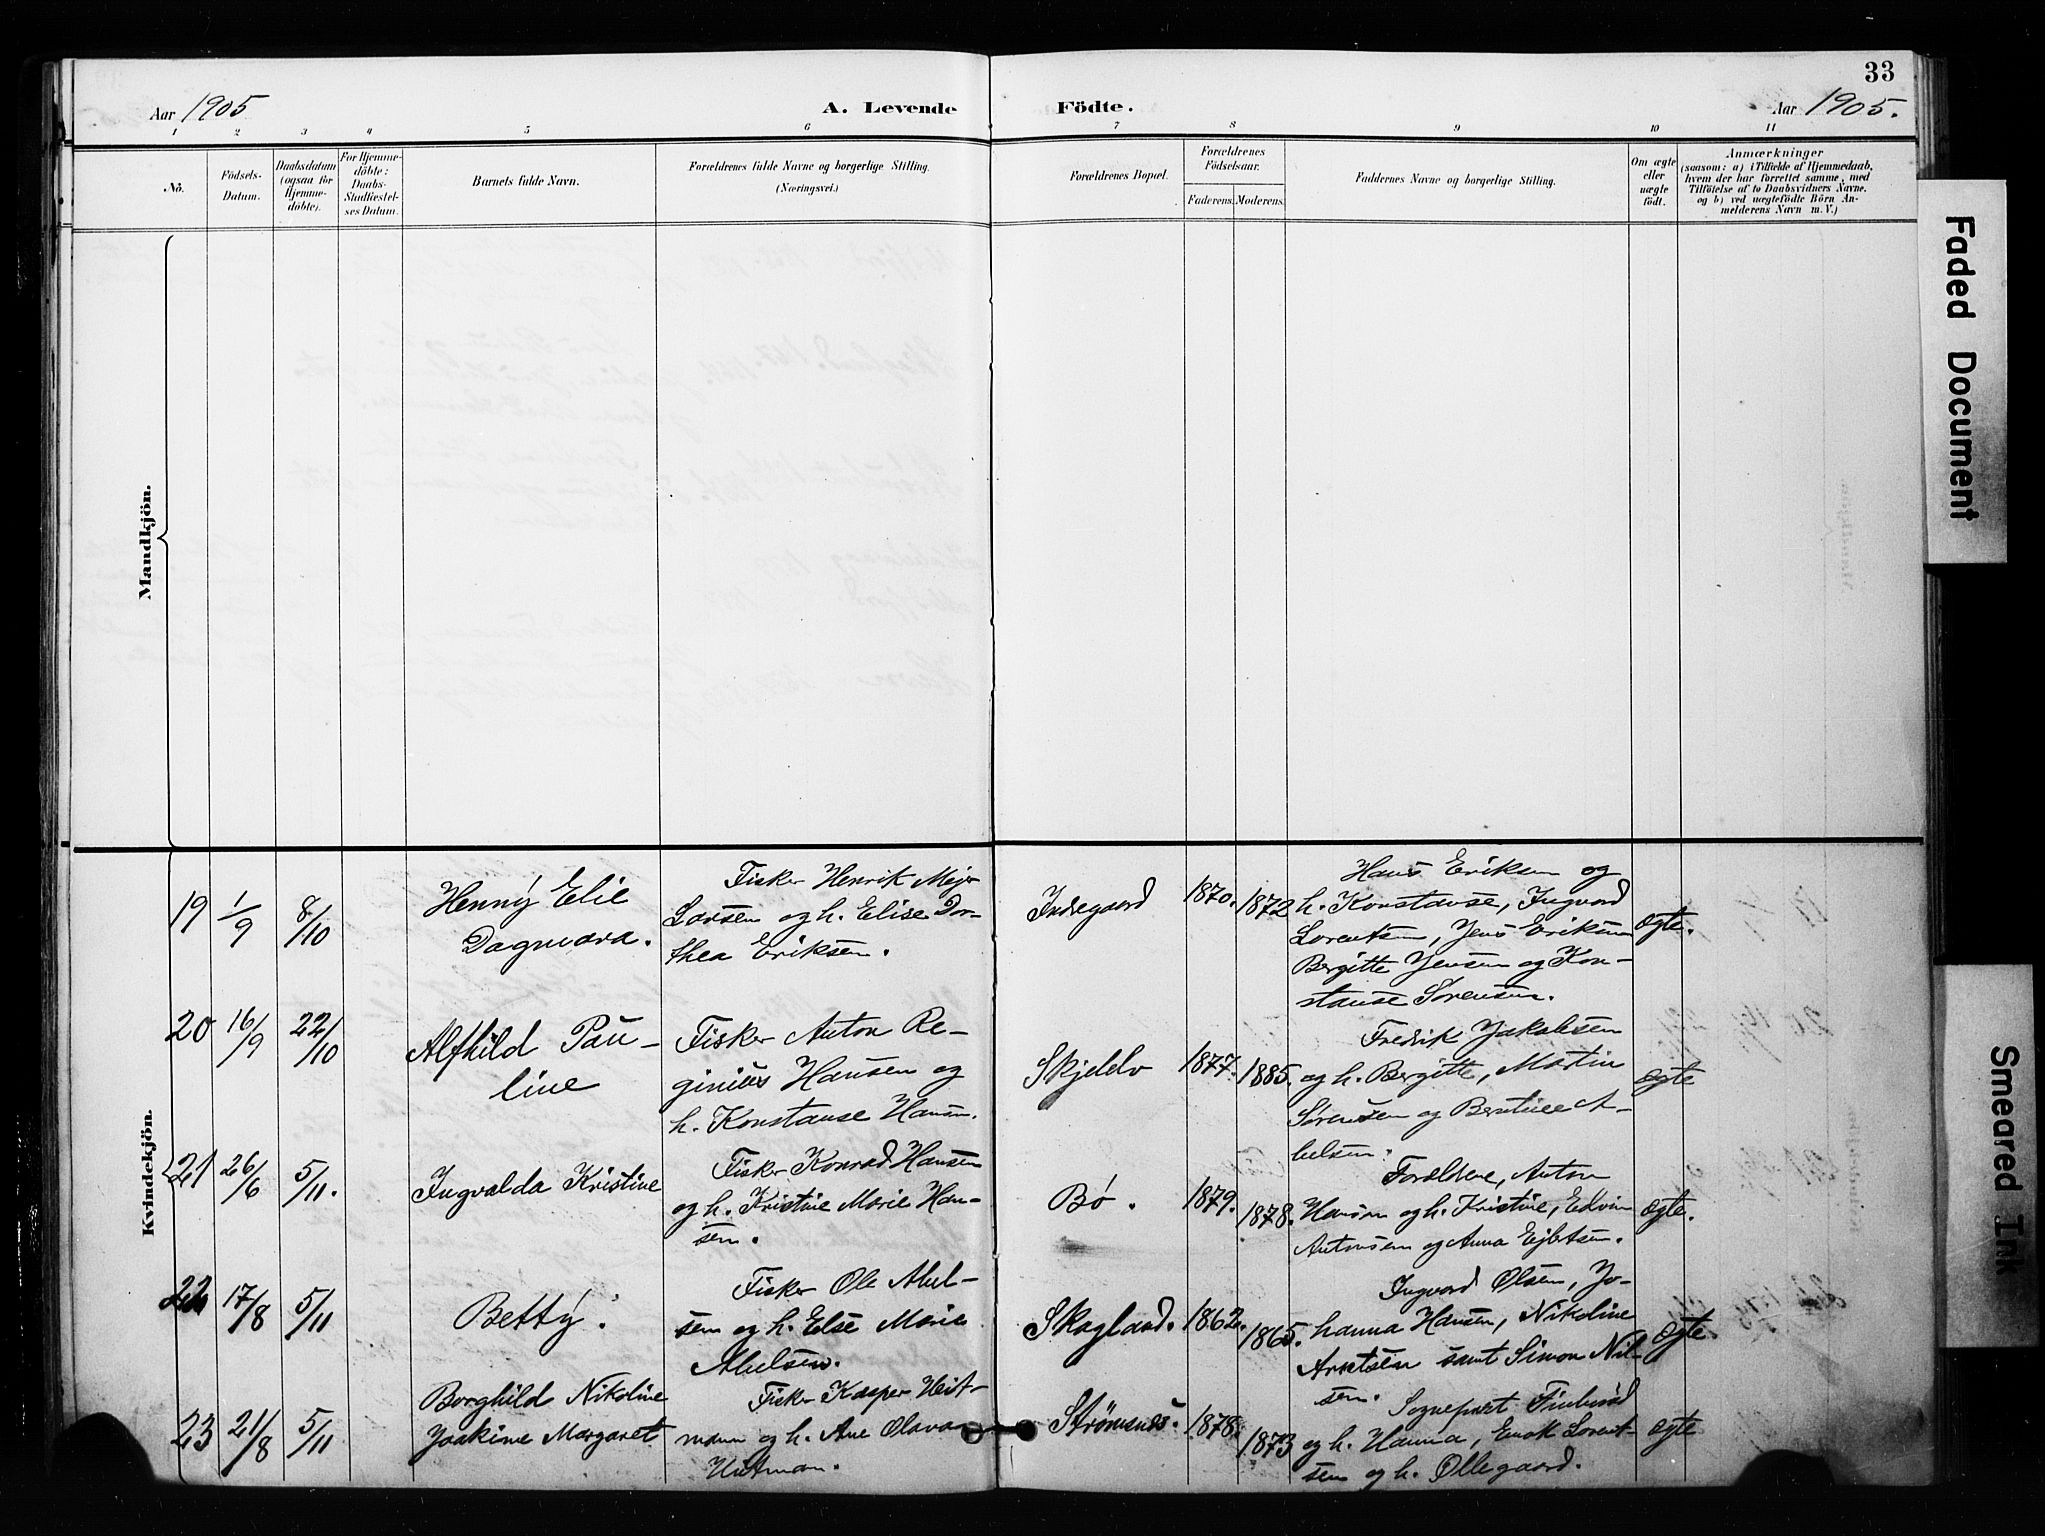 33
Aar 1905
A. Levende
Födte.
Aar 1905.
1 2 3 4 5 6 7 8 9 10 11
No.
Födsels-
Datum.
Daabsdatum
(ogsaa for
Hjemme-
döbte).
For Hjemme-
döbte:
Daabs-
Stadfæstel-
ses Datum.
Barnets fulde Navn.
Forældrenes fulde Navne og borgerlige Stilling.
(Næringsvei.)
Forældrenes Bopæl.
Forældrenes
Födselsaar.
Faderens. Moderens.
Faddernes Navne og borgerlige Stilling.
Om ægte
eller
uægte
födt.
Anmærkninger
(saasom: a) i Tilfælde af Hjemmedaab,
hvem der har forrettet samme, med
Tilföielse af to Daabsvidners Navne.
og b) ved uægtefödte Börn An-
melderens Navn m. V.)
Mandkjön.
Kvindekjön.
19 1/9 8/10
Henny Elie
Dagmara.
Fisker Henrik Mejer
Larsen og h. Elise Dor-
thea Eriksen.
Indregaard 1870. 1872
Hans Eriksen og
h. Konstanse, Ingvard
Lorentsen, Jens Eriksen
Bergitte Jensen og Kon-
stanse Sørensen.
ægte.
20 16/9 22/10
Alfhild Pau-
line
Fisker Anton Re-
ginius Hansen og
h. Konstanse Hansen.
Skjelelv 1877. 1885.
Fredrik Jakobsen
og h. Bergitte, Martin
Sørensen og Bentine A-
belsen.
ægte
21 26/6 5/11.
Ingvalda Kristine
Fisker Konrad Hansen
og h. Kristine Marie Han-
sen.
Bø. 1879. 1878.
Foreldrene, Anton
Hansen og h. Kristine, Edvin
Antonsen og Anna Ejbertsen.
ægte.
22 17/8 5/11
Betty.
Fisker Ole Abel-
sen og h. Else Marie
Abelsen.
Skogland. 1862. 1865.
Ingvard Olsen, Jo-
hanna Hansen, Nikoline
Arntsen samt Simon Nil-
sen.
ægte.
23 21/8 5/11
Borghild Nikoline
Joakime Margaret
Fisker Kasper Heit-
mann og h. Ane Olava
Heitman.
Strømsnes. 1878. 1873
Sogneprest
og h. Hanna, Enok Lorent-
sen og h. Ollegaard.
ægte
Faded Document
Smeared Ink